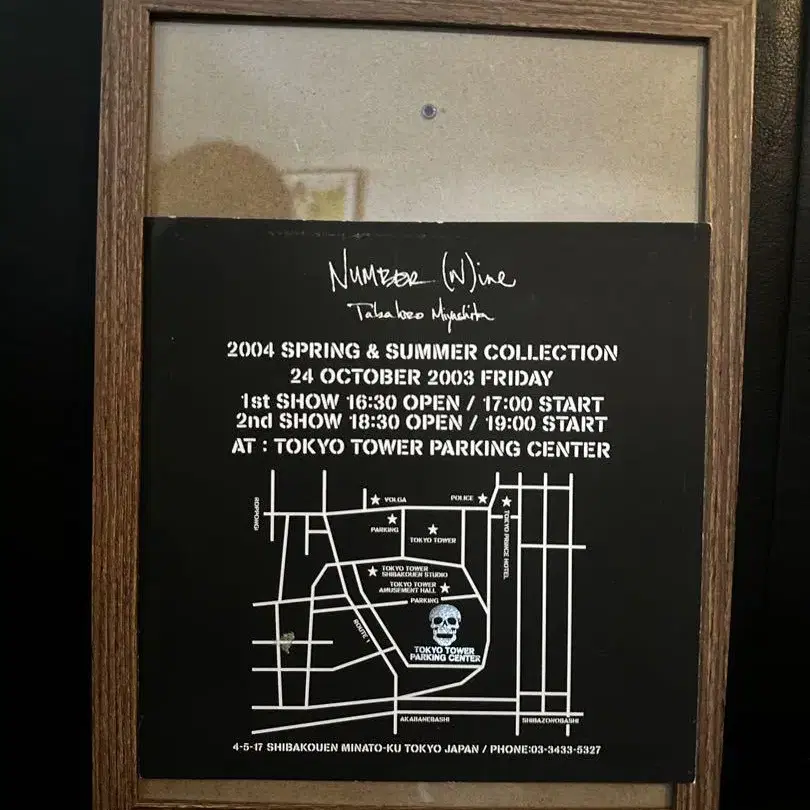 NUMBER (N)ine
Takahiro Miyashita
2004 SPRING & SUMMER COLLECTION
24 OCTOBER 2003 FRIDAY
1st SHOW 16:30 OPEN / 17:00 START
2nd SHOW 18:30 OPEN / 19:00 START
AT : TOKYO TOWER PARKING CENTER
ROPPONGI
VOLGA
POLICE
PARKING
TOKYO TOWER
TOKYO PRINCE HOTEL
TOKYO TOWER
SHIBAKOUEN STUDIO
TOKYO TOWER
AMUSEMENT HALL
PARKING
ROUTE 1
TOKYO TOWER
PARKING CENTER
AKABANEBASHI
SHIBAZONOBASHI
4-5-17 SHIBAKOUEN MINATO-KU TOKYO JAPAN / PHONE:03-3433-5327